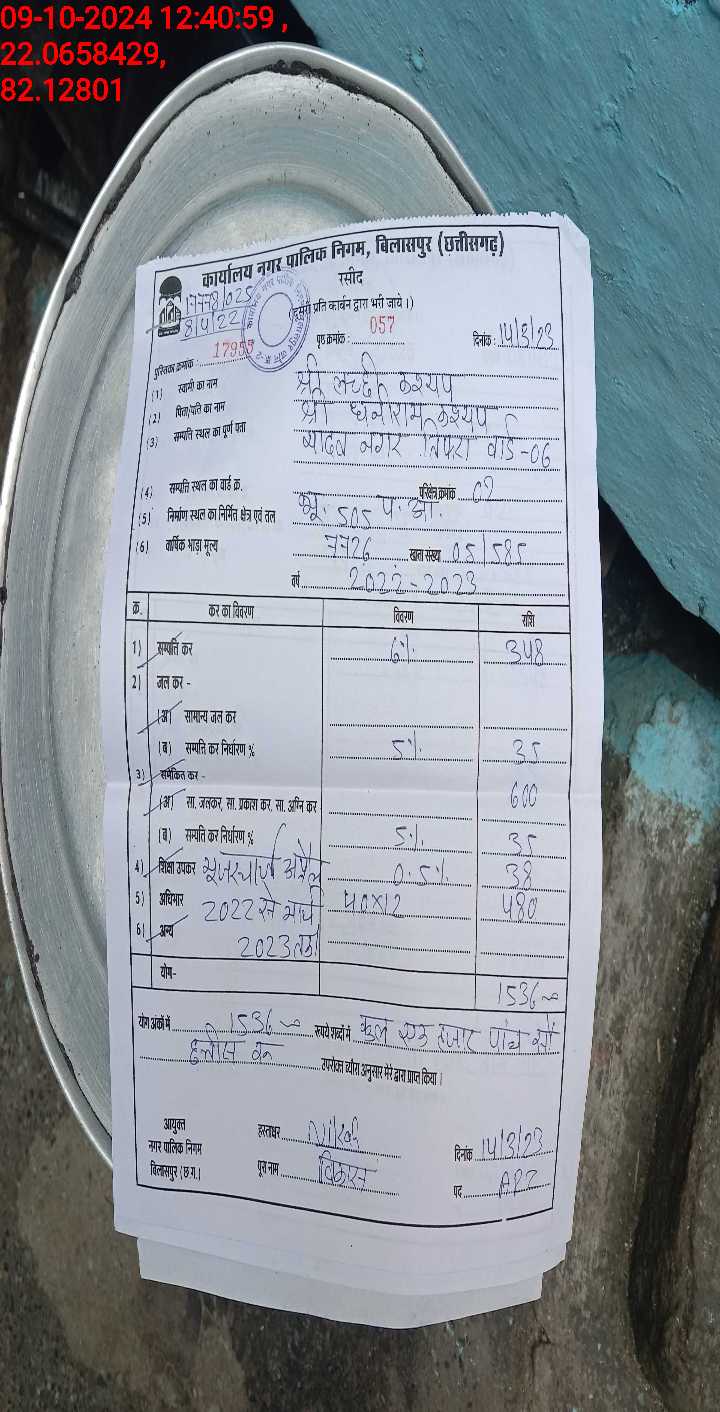 09-10-2024 12:40:59 ,
22.0658429,
82.12801
कार्यालय नगर पालिक निगम, बिलासपुर (छत्तीसगढ़)
रसीद
17778/025
(दूसरी प्रति कार्बन द्वारा भरी जाये।)
8/4/22
पुस्तिका क्रमांक : 17955 पृष्ठ क्रमांक : 057 दिनांक : 14/3/23
(1) स्वामी का नाम श्री लच्छी कश्यप
(2) पिता/पति का नाम श्री धनीराम कश्यप
(3) सम्पत्ति स्थल का पूर्ण पता यादव नगर तिफरा वार्ड-06
(4) सम्पत्ति स्थल का वार्ड क्र. परिक्षेत्र क्रमांक 02
(5) निर्माण स्थल का निर्मित क्षेत्र एवं तल भू. 505 प.आ.
(6) वार्षिक भाड़ा मूल्य 7726 खाता संख्या 05/585
वर्ष 2022-2023
क्र. कर का विवरण विवरण राशि
1) सम्पत्ति कर 6% 348
2) जल कर -
(अ) सामान्य जल कर
(ब) सम्पत्ति कर निर्धारण % 5% 35
3) समेकित कर -
(अ) सा. जलकर, सा. प्रकाश कर, सा. अग्नि कर 600
(ब) सम्पत्ति कर निर्धारण % 5% 35
4) शिक्षा उपकर यूजरचार्ज अप्रैल 0.5% 38
5) अधिभार 2022 से मार्च 40x12 480
6) अन्य 2023 तक
योग- 1536
योग अंकों में 1536 रूपये शब्दों में कुल एक हजार पांच सौ
छत्तीस रू उपरोक्त ब्यौरा अनुसार मेरे द्वारा प्राप्त किया।
आयुक्त
नगर पालिक निगम
बिलासपुर (छ.ग.)
हस्ताक्षर
दिनांक 14/3/23
पूरा नाम विकास
पद ARI